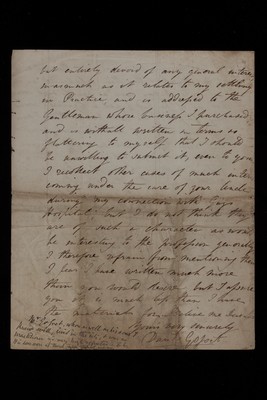 but entirely devoid of any general interest
inasmuch as it relates to my settling
in Practice and is addressed to the
Gentleman whose business I purchased,
and is withall written in terms so
flattering to myself that I should
be unwilling to submit it, even to you
I recollect other cases of much interest
coming under the care of your Uncle
during my connection with Guys
Hospital, but I do not think they
are of such a character as would
be interesting to the profession generally
I therefore refrain from mentioning them
I fear I have written much more
than you would desire, but I assure
you it is much less than I have
the materials for. Believe me Dear Sir
Yours very sincerely